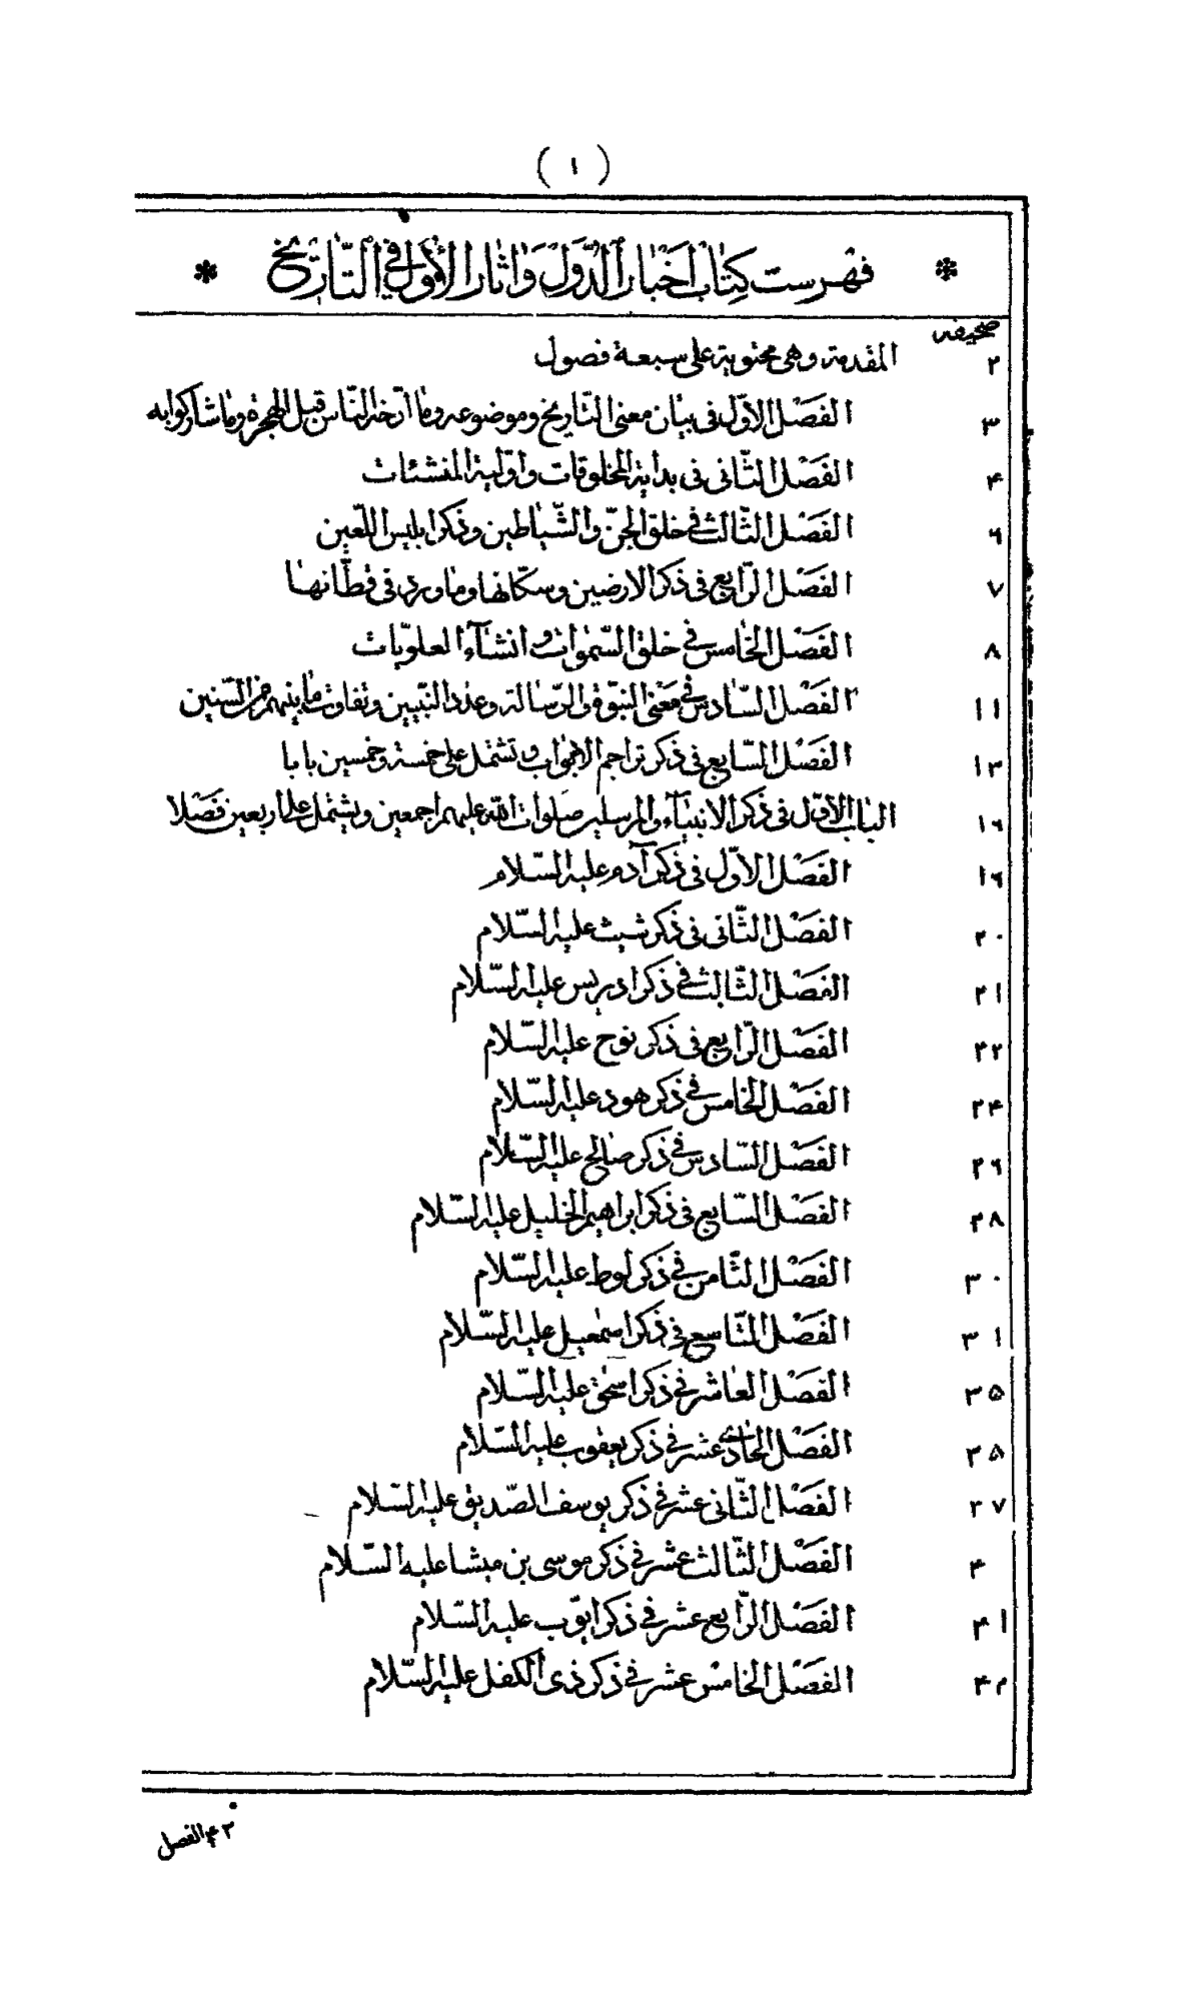 ( ١ )
* فهرست كتاب اخبار الدول واثار الاول في التاريخ *
صحيفه
٢ المقدمة وهى محتوية على سبعة فصول
٣ الفصل الاول فى بيان معنى التاريخ وموضوعه وما ارخه الناس قبل الهجرة وما شاركوا به
۴ الفصل الثانى فى بداية المخلوقات واولية المنشئات
٦ الفصل الثالث فى خلق الجن والشياطين وذكر ابليس اللعين
٧ الفصل الرابع فى ذكر الارضين وسكانها وما ورد فى قطانها
٨ الفصل الخامس فى خلق السموات وانشآء العلويات
١١ الفصل السادس فى معنى النبوة والرسالة وعدد النبيين وتفاوت ما بينهم من السنين
١٣ الفصل السابع فى ذكر تراجم الابواب وتشتمل على خمسة وخمسين بابا
١٦ الباب الاول فى ذكر الانبيآء والمرسلين صلوات الله عليهم اجمعين ويشتمل على اربعين فصلا
١٦ الفصل الاول فى ذكر آدم عليه السلام
٢٠ الفصل الثانى فى ذكر شيث عليه السلام
٢١ الفصل الثالث فى ذكر ادريس عليه السلام
٢٢ الفصل الرابع فى ذكر نوح عليه السلام
٢۴ الفصل الخامس فى ذكر هود عليه السلام
٢٦ الفصل السادس فى ذكر صالح عليه السلام
٢٨ الفصل السابع فى ذكر ابراهيم الخليل عليه السلام
٣٠ الفصل الثامن فى ذكر لوط عليه السلام
٣١ الفصل التاسع فى ذكر اسمعيل عليه السلام
٣۵ الفصل العاشر فى ذكر اسحق عليه السلام
٣۵ الفصل الحادى عشر فى ذكر يعقوب عليه السلام
٣٧ الفصل الثانى عشر فى ذكر يوسف الصديق عليه السلام
۴ الفصل الثالث عشر فى ذكر موسى بن ميشا عليه السلام
۴١ الفصل الرابع عشر فى ذكر ايوب عليه السلام
۴٢ الفصل الخامس عشر فى ذكر ذى الكفل عليه السلام
۴٣ الفصل